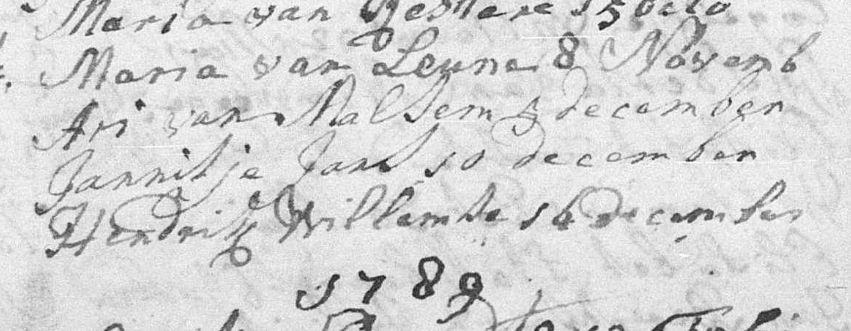 Maria van 15 octo
Maria van Leune 8 Novemb
Ari van Malsem 5 december
Jannitje Jans 10 december
Hendrik Willemse 16 december
1789